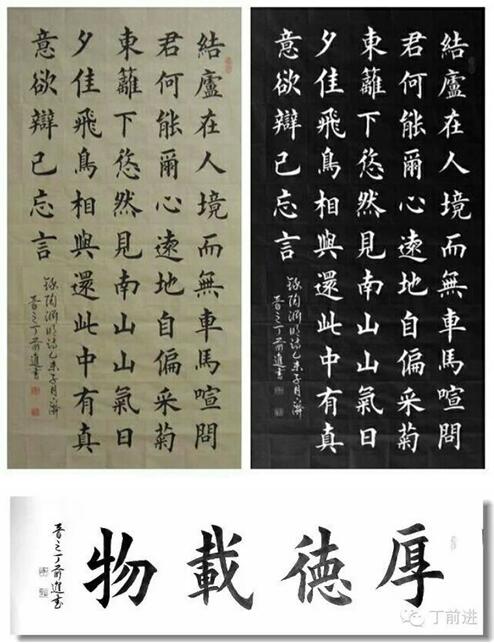 結廬在人境而無車馬喧問
君何能爾心遠地自偏采菊
東籬下悠然見南山山氣日
夕佳飛鳥相與還此中有真
意欲辯已忘言
錄陶淵明詩乙未子月
晉之丁前進書
結廬在人境而無車馬喧問
君何能爾心遠地自偏采菊
東籬下悠然見南山山氣日
夕佳飛鳥相與還此中有真
意欲辯已忘言
錄陶淵明詩乙未子月
晉之丁前進書
厚德載物
晉之丁前進書
丁前进